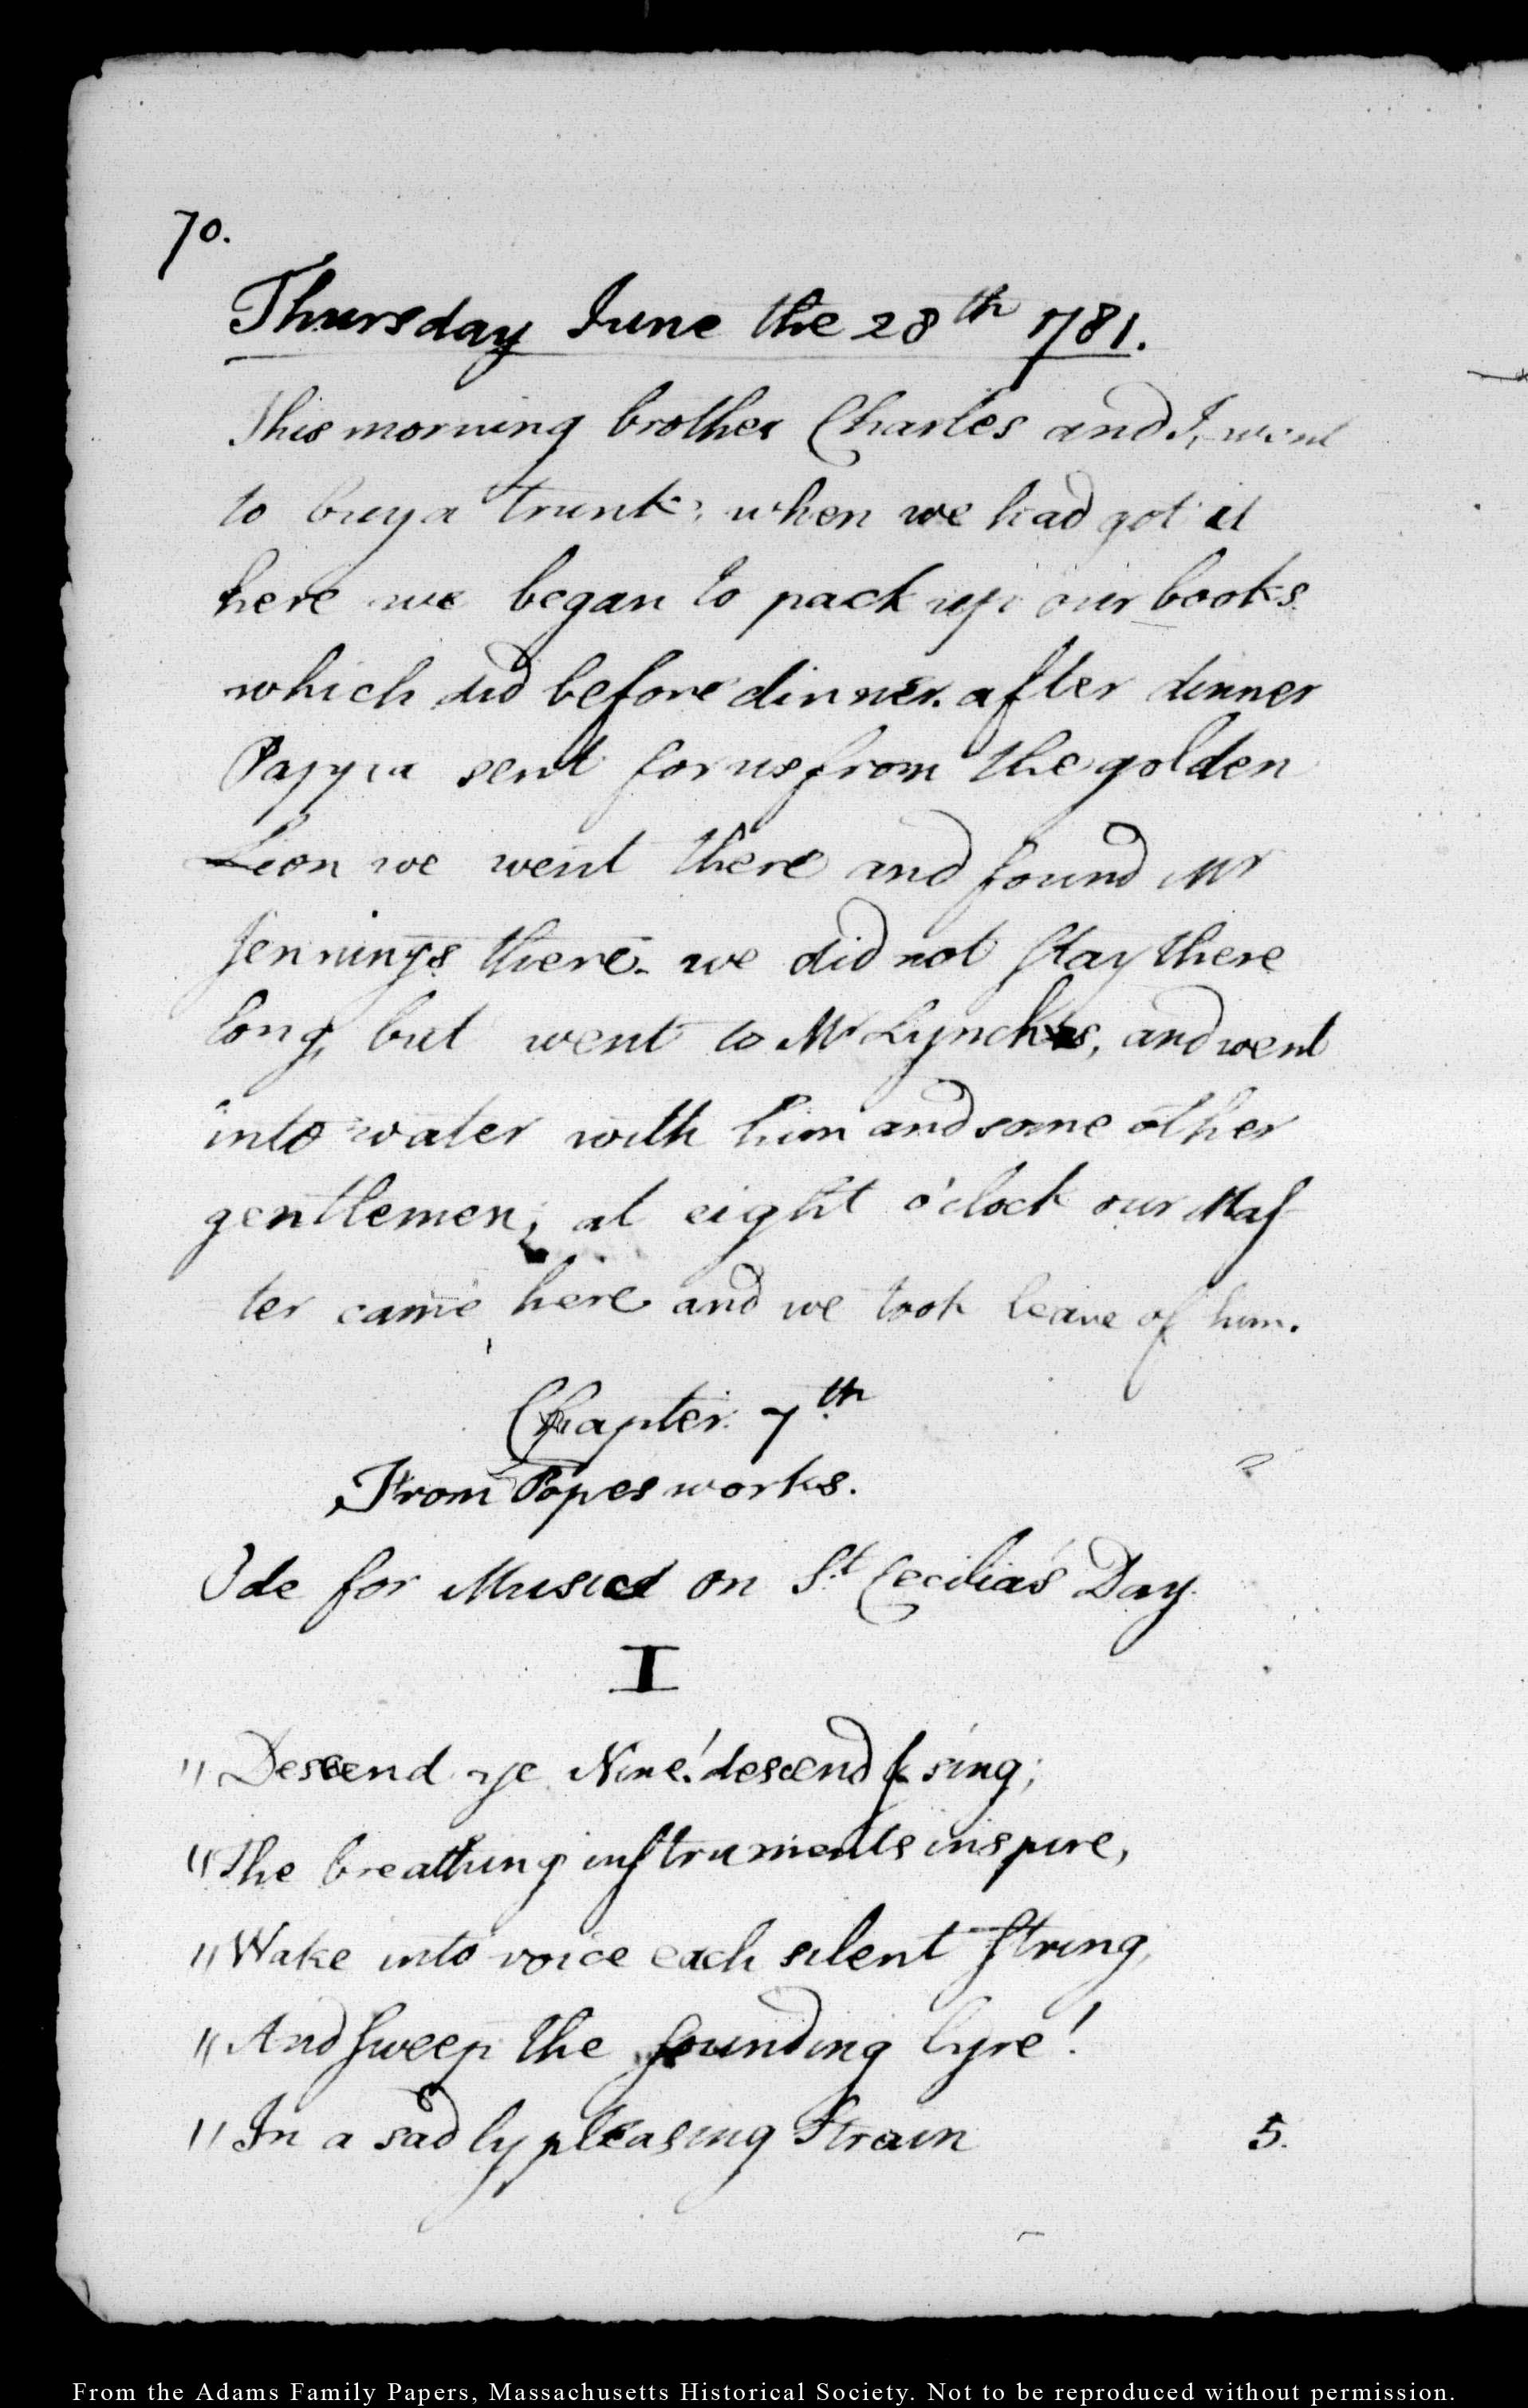 70.
Thursday June the 28th 1781.
This morning brother Charles and I, went
to buy a trunk; when we had got it
here we began to pack up our books
which did before dinner. after dinner
Pappa sent for us from the golden
Lion we went there and found Mr
Jennings there. we did not stay there
long, but went to Mr Lynchs, and went
into water with him and some other
gentlemen; at eight o'clock our Mas
ter came here and we took leave of him.
Chapter 7th
From Popes works.
Ode for Musick on St Cecilia's Day.
I
"Descend ye Nine! descend & sing;
"The breathing instruments inspire,
"Wake into voice each silent string,
"And sweep the sounding lyre!
"In a sadly pleasing strain 5.
From the Adams Family Papers, Massachusetts Historical Society. Not to be reproduced without permission.